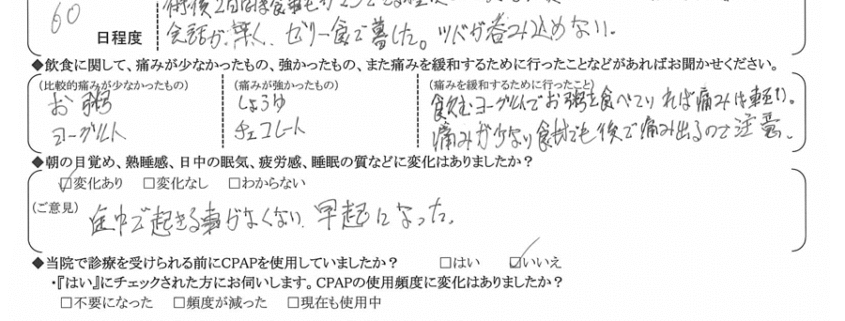 60 日程度
会話が辛く、ゼリー食で暮した。ツバが呑み込めない。
◆飲食に関して、痛みが少なかったもの、強かったもの、また痛みを緩和するために行ったことなどがあればお聞かせください。
(比較的痛みが少なかったもの) (痛みが強かったもの) (痛みを緩和するために行ったこと)
お粥 しょうゆ 飲むヨーグルトでお粥を食べていれば痛みは軽い。
ヨーグルト チョコレート 痛みが少ない食材でも後で痛み出るので注意。
◆朝の目覚め、熟睡感、日中の眠気、疲労感、睡眠の質などに変化はありましたか?
☑変化あり □変化なし □わからない
(ご意見) 途中で起きる事がなくない、早起になった。
◆当院で診療を受けられる前にCPAPを使用していましたか? □はい ☑いいえ
・『はい』にチェックされた方にお伺いします。CPAPの使用頻度に変化はありましたか?
□不要になった □頻度が減った □現在も使用中